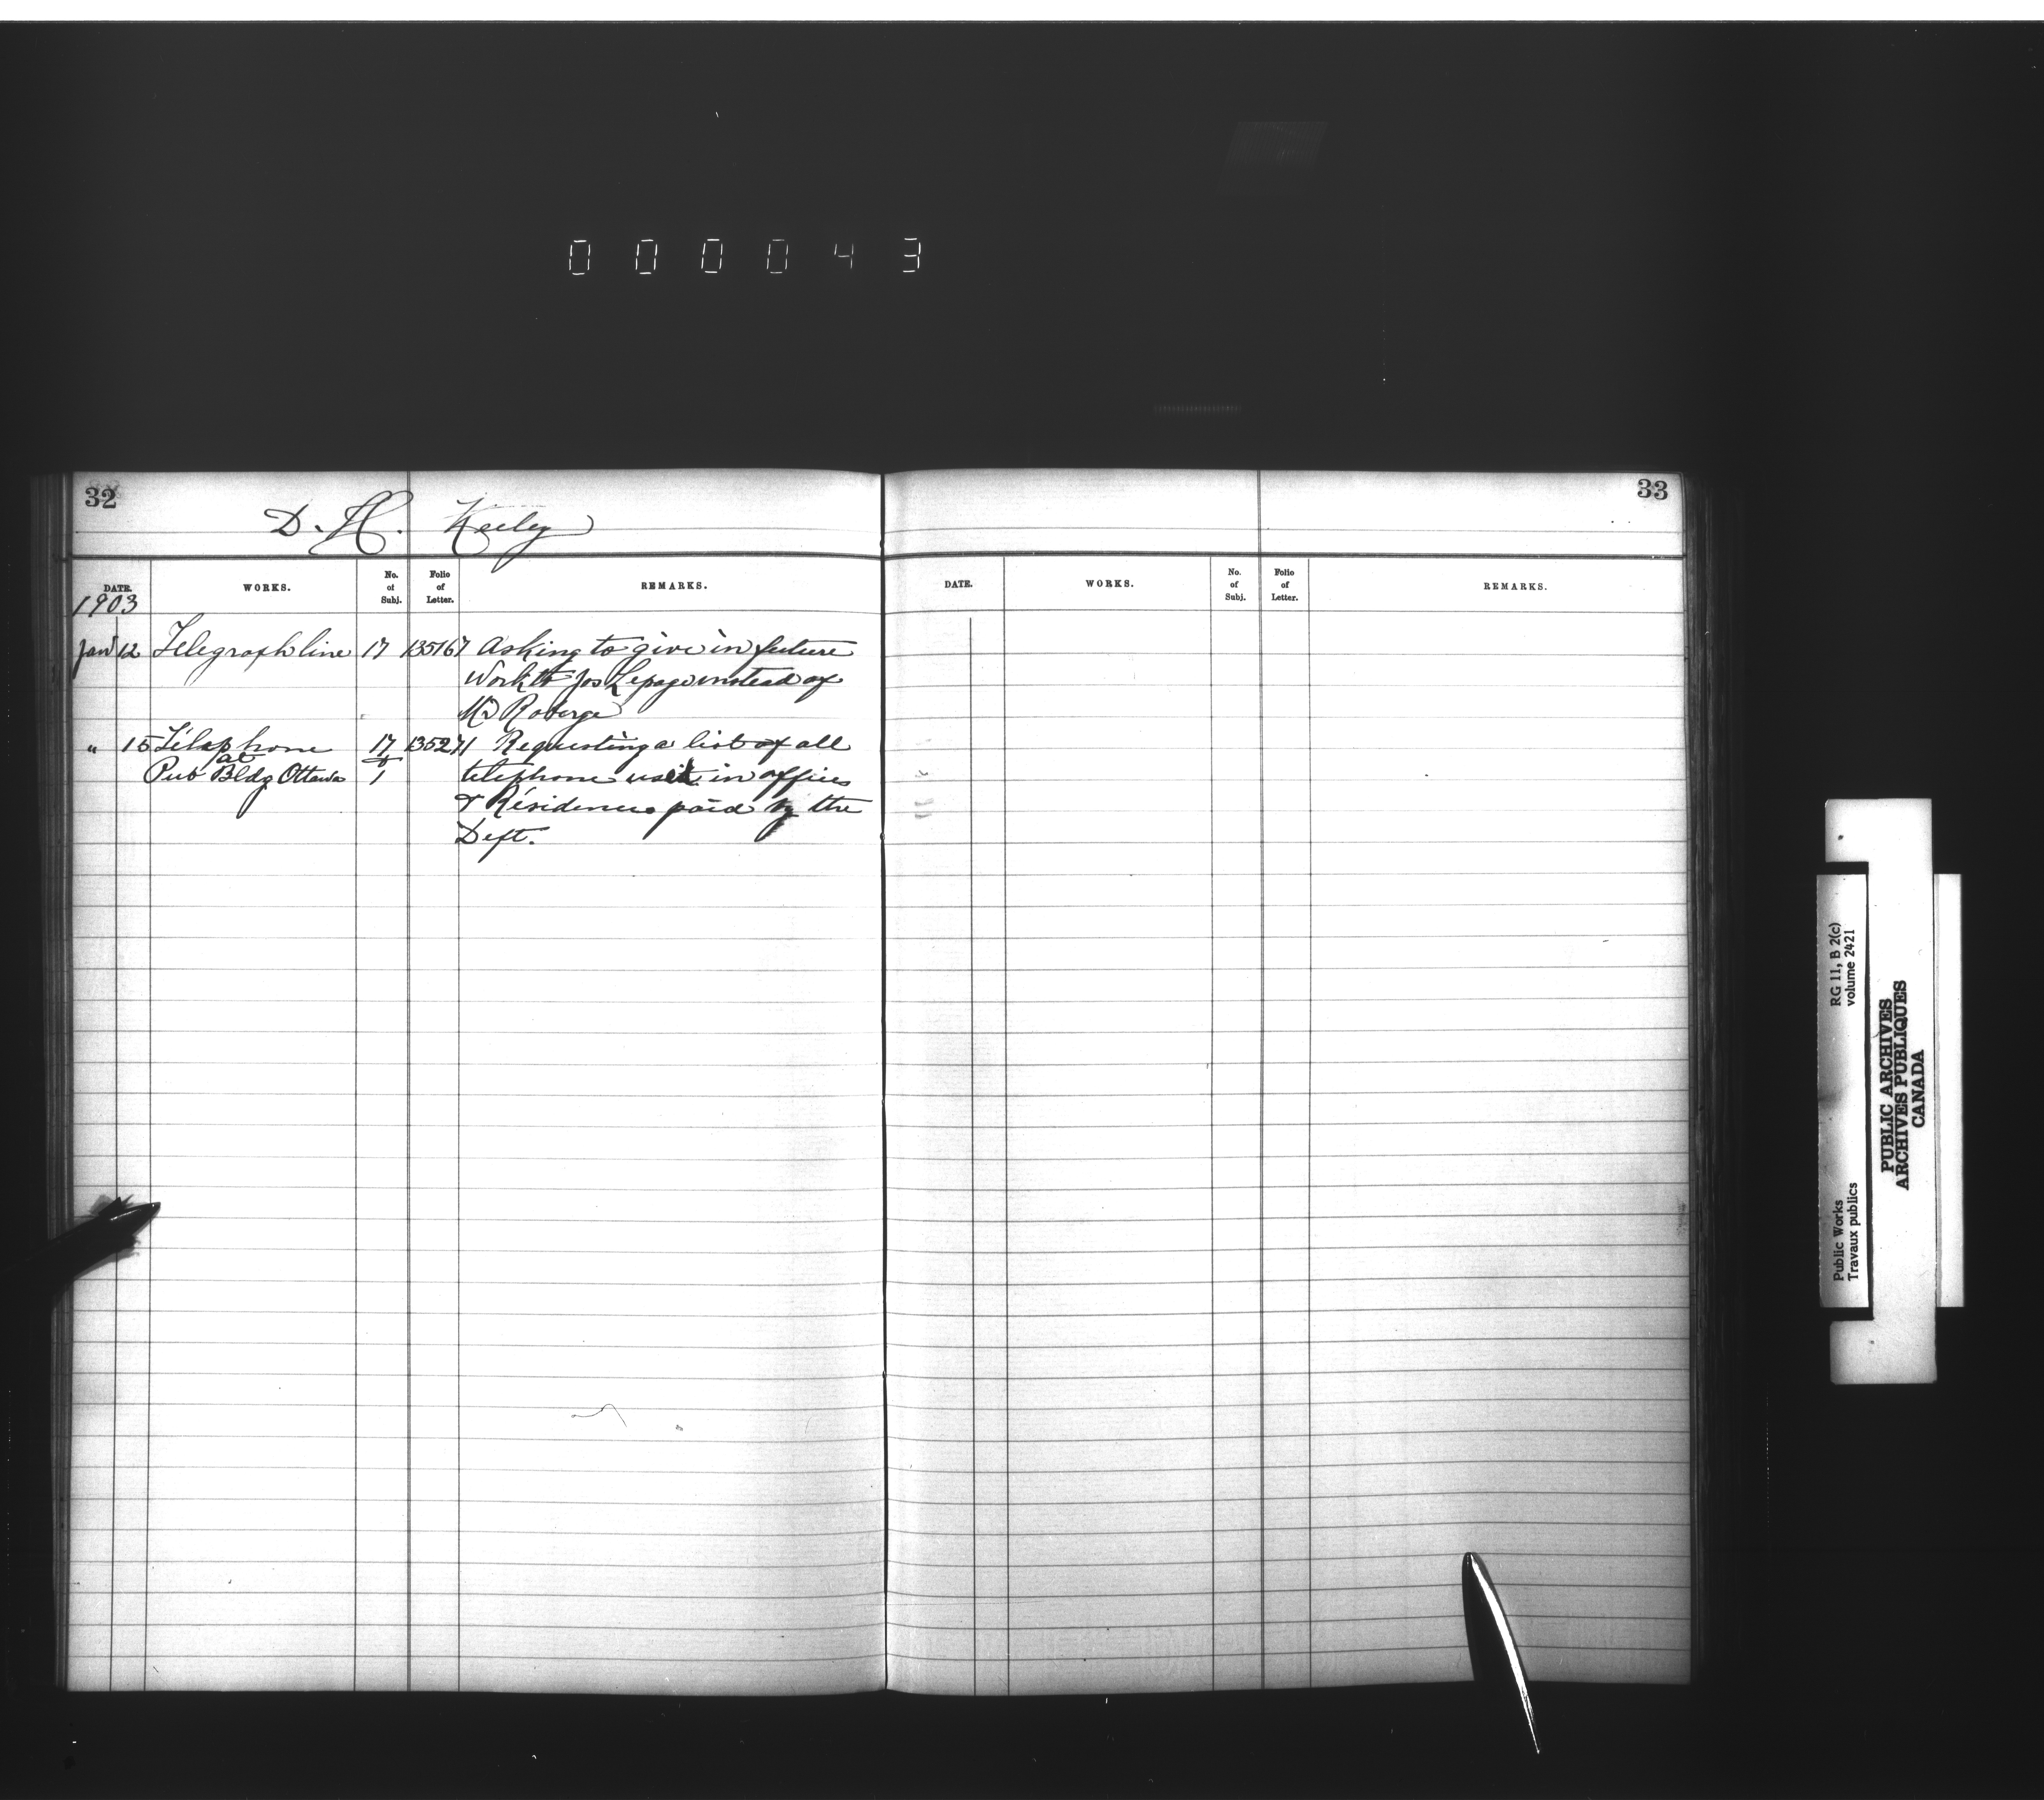 000043
32
D. H. Keeley
DATE. WORKS. No. of Subj. Folio of Letter. REMARKS.
1903
Jan 12 Telegraph line 17 135167 Asking to give in future
work to Jos Lepage instead of
Mr Roberge
" 15 Telephone 17 135271 Requesting a list of all
at
Pub Bldg Ottawa & 1 telephone used in offices
& Residences paid by the
Dept.
33
DATE. WORKS. No. of Subj. Folio of Letter. REMARKS.
Public Works RG 11, B 2(c)
Travaux publics volume 2421
PUBLIC ARCHIVES
ARCHIVES PUBLIQUES
CANADA